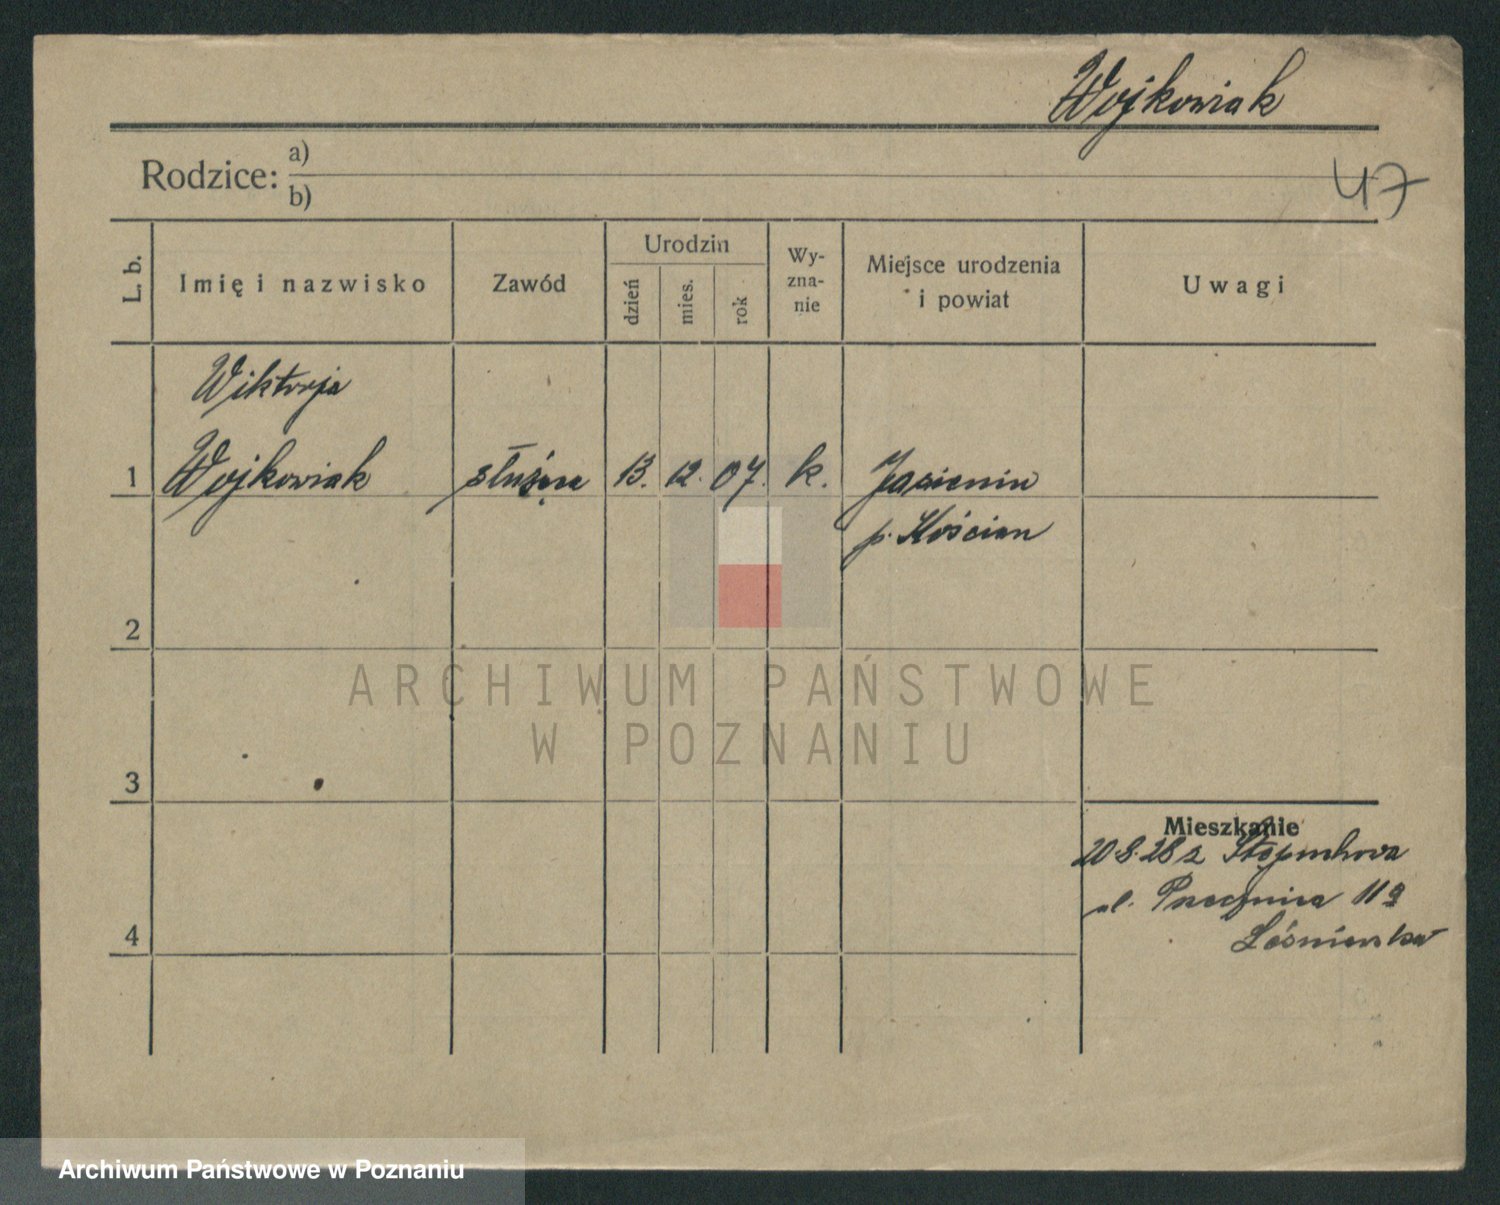 Wojkowiak
Rodzice: a)
b)
47
L. b.
Imię i nazwisko
Zawód
Urodzin
dzień
mies.
rok
Wy-
zna-
nie
Miejsce urodzenia
i powiat
Uwagi
Wiktorja
1 Wojkowiak służąca 13. 12. 07. k. Jasienin
p. Kościan
2
ARCHIWUM PAŃSTWOWE
W POZNANIU
3
Mieszkanie
20.8.28 z
ul. Przecznica 11a
4
Archiwum Państwowe w Poznaniu